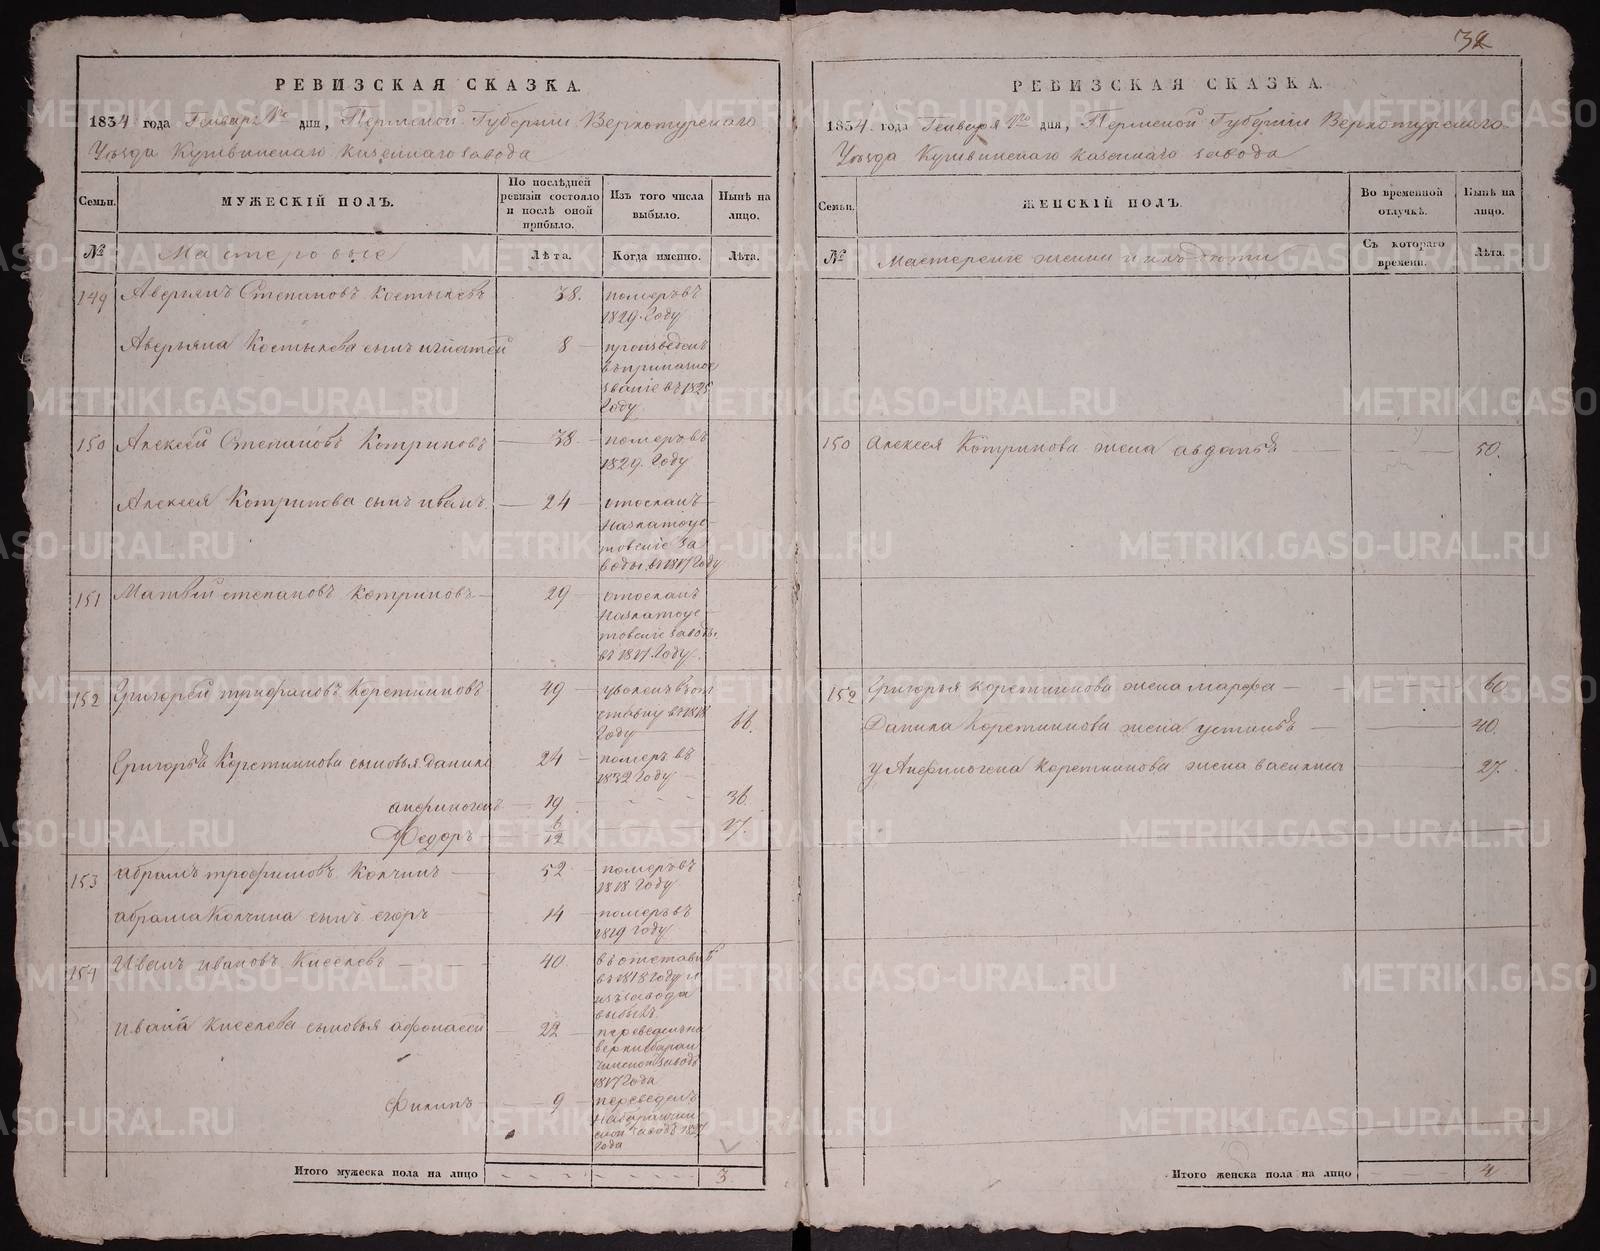 32
РЕВИЗСКАЯ СКАЗКА.
1834 года Генваря 1го дня, Пермской Губернии Верхотурскаго
Уѣзда Кушвинскаго казеннаго завода
Семьи.
МУЖЕСКІЙ ПОЛЪ.
По послѣдней ревизіи состояло и послѣ оной прибыло.
Изъ того числа выбыло.
Нынѣ на лицо.
№
Мастеровые
Лѣта.
Когда именно.
Лѣта.
149 Аверьянъ Степановъ Костылевъ 38. померъ въ
1829 Году
Аверьяна Костылева сынъ Игнатей 8 произведенъ
званіе въ 1825
Году
150 Алексей Степановъ Котриновъ 38. померъ въ
1829 Году
Алексея Котринова сынъ иванъ 24 отосланъ
Назлатоус
товские за
воды въ 1817 Году
151 Матвей степановъ котриновъ 29 отосланъ
Назлатоус
товские заводы
въ 1817 Году
152 Григорей трифоновъ Коретниковъ 49 уволенъ въ от
ставку въ 1818
Году 66.
Григорья Коретникова сыновья данила 24 померъ въ
1832 Году
анфиногенъ 19 36.
Федоръ 6/12 17.
153 абрамъ трофимовъ Колчинъ 52 померъ въ
1818 Году
абрама Колчина сынъ егоръ 14 померъ въ
1819 Году
154 Иванъ ивановъ Киселевъ 40. въ отставкѣ
въ 1818 Году и
изъ завода
выбылъ
ивана киселева сыновья афонасей 22 переведенъ на
верхнебаран
чинской заводъ
1817 Года
Филипъ 9 переведенъ
набаранчин
ской заводъ
Года
Итого мужеска пола на лицо 3
РЕВИЗСКАЯ СКАЗКА.
1834 года Генваря 1го дня, Пермской Губерніи Верхотурскаго
Уѣзда Кушвинскаго казеннаго завода
Семьи.
ЖЕНСКІЙ ПОЛЪ.
Во временной отлучкѣ.
Нынѣ на лицо.
№
Мастерские женки и ихъ дѣти
Съ котораго времени.
Лѣта.
150 Алексея Котринова жена авдотья 50.
152 Григорья коретникова жена марфа 60
Данила Коретникова жена устинья 40.
у Анфиногена коретникова жена василиса 27.
Итого женска пола на лицо 4
METRIKI.GASO-URAL.RU